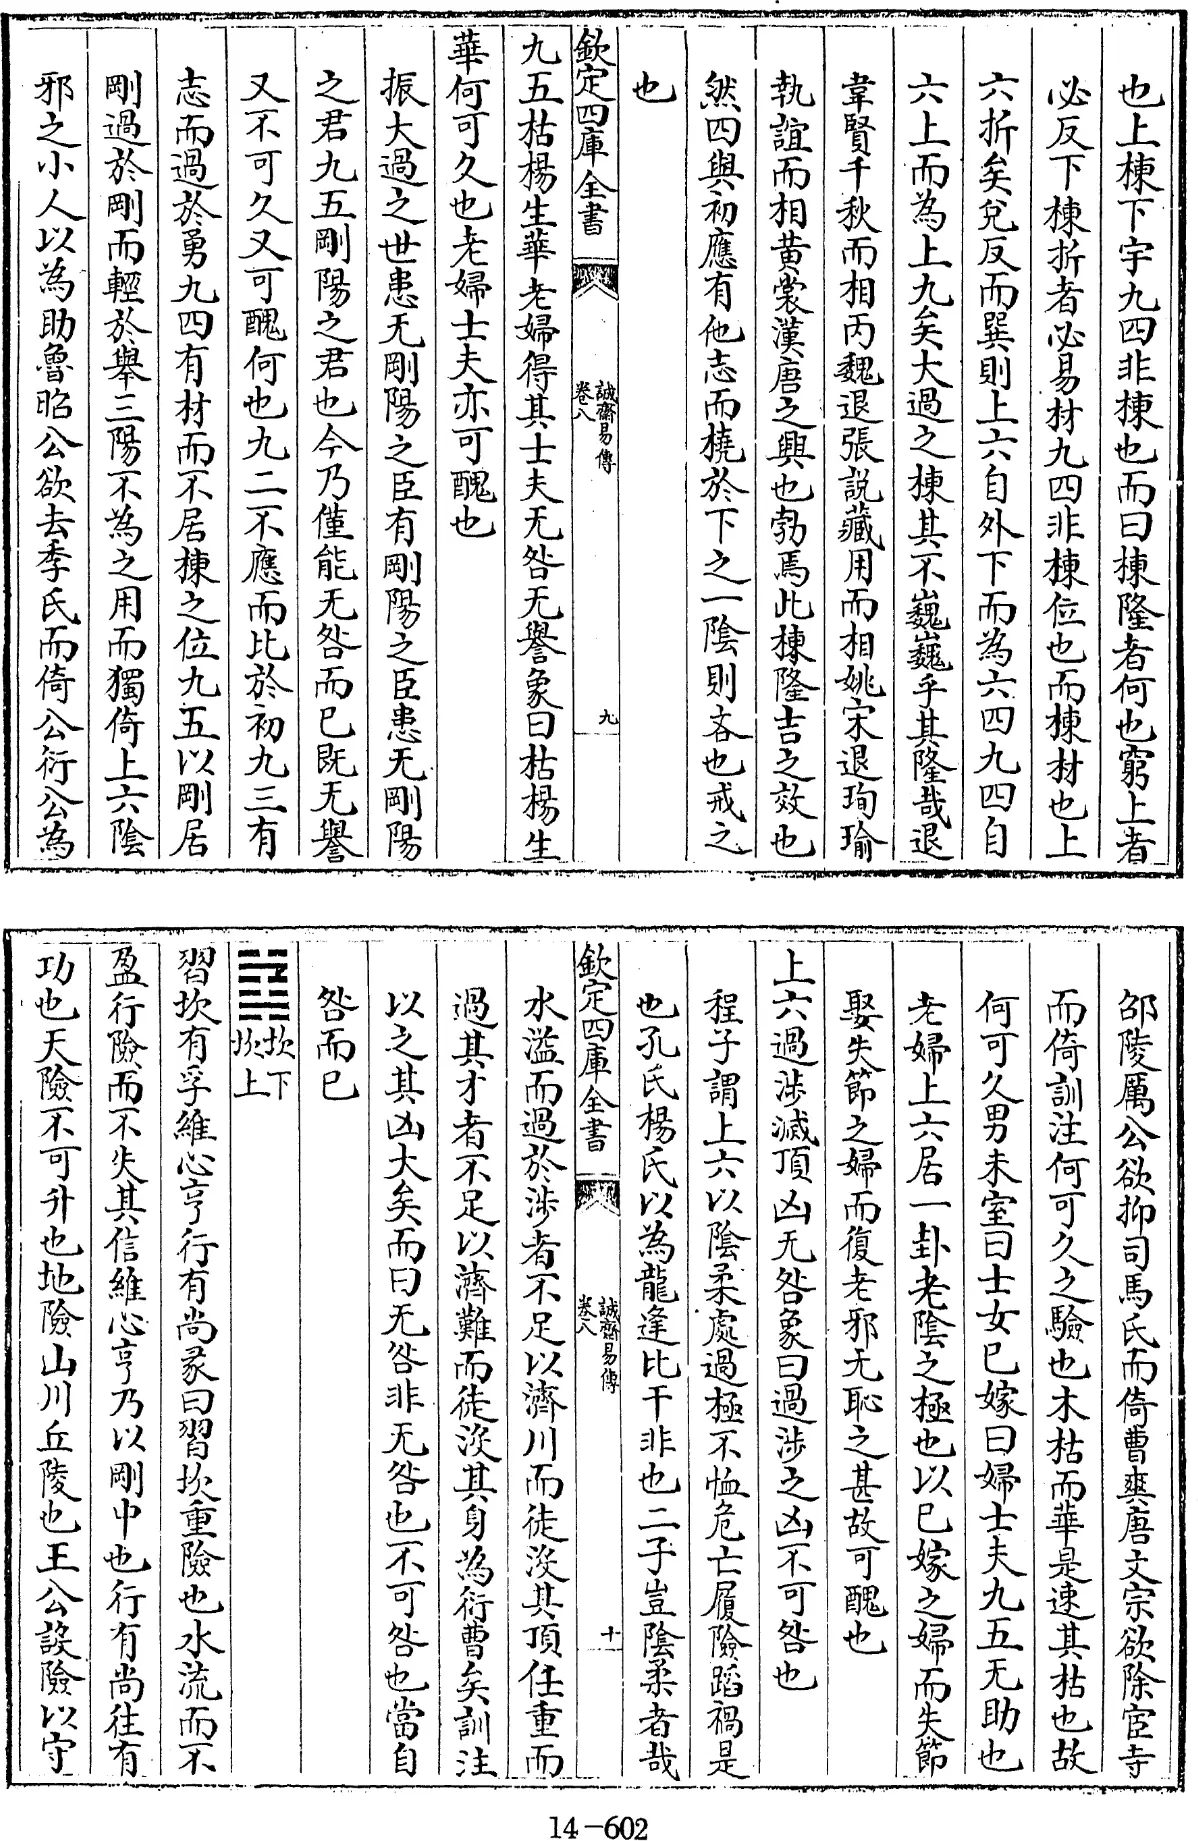 也上棟下宇九四非棟也而曰棟隆者何也窮上者
必反下棟折者必易材九四非棟位也而棟材也上
六折矣兌反而巽則上六自外下而為六四九四自
六上而為上九矣大過之棟其不巍巍乎其隆哉退
韋賢千秋而相丙魏退張說藏用而相姚宋退珣瑜
執誼而相黃裳漢唐之興也勃焉此棟隆吉之效也
然四與初應有他志而橈於下之一陰則吝也戒之
也
欽定四庫全書
誠齋易傳
卷八
九
九五枯楊生華老婦得其士夫无咎无譽象曰枯楊生
華何可久也老婦士夫亦可醜也
振大過之世患无剛陽之臣有剛陽之臣患无剛陽
之君九五剛陽之君也今乃僅能无咎而已既无譽
又不可久又可醜何也九二不應而比於初九三有
志而過於勇九四有材而不居棟之位九五以剛居
剛過於剛而輕於舉三陽不為之用而獨倚上六陰
邪之小人以為助魯昭公欲去季氏而倚公衍公為
邵陵厲公欲抑司馬氏而倚曹爽唐文宗欲除宦寺
而倚訓注何可久之驗也木枯而華是速其枯也故
何可久男未室曰士女已嫁曰婦士夫九五无助也
老婦上六居一卦老陰之極也以已嫁之婦而失節
娶失節之婦而復老邪无恥之甚故可醜也
上六過涉滅頂凶无咎象曰過涉之凶不可咎也
程子謂上六以陰柔處過極不恤危亡履險蹈禍是
也孔氏楊氏以為龍逢比干非也二子豈陰柔者哉
欽定四庫全書
誠齋易傳
卷八
十
水溢而過於涉者不足以濟川而徒沒其頂任重而
過其才者不足以濟難而徒沒其身為衍曹矣訓注
以之其凶大矣而曰无咎非无咎也不可咎也當自
咎而已
坎下
坎上
習坎有孚維心亨行有尚彖曰習坎重險也水流而不
盈行險而不失其信維心亨乃以剛中也行有尚往有
功也天險不可升也地險山川丘陵也王公設險以守
14-602